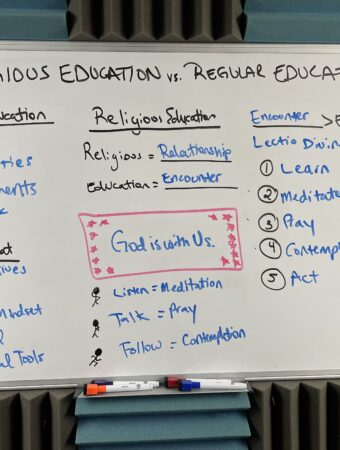 IOUS EDUCATION vs. REGULAR EDUCAT
ucation
ries
ments
at
ives
indset
al Tools
Religious Education
Religious = Relationship
Education = Encounter
God is with Us.
Listen = Meditation
Talk = Pray
Follow = Contemplation
Encounter > E
Lectio Divin
1 Learn
2 Meditate
3 Pray
4 Contemp
5 Act